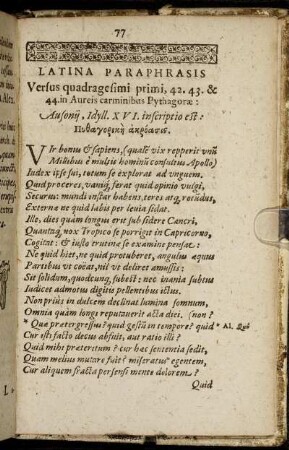 77
LATINA PARAPHRASIS
Versus quadragesimi primi, 42. 43. &
44. in Aureis carminibus Pythagoræ:
Ausonij, Idyll. XVI. inscriptio est:
Πυθαγορικὴ ἀκρόασις.
VIr bonus & sapiens, (qualē vix repperit vnū
Milibus è multis hominū consultus Apollo)
Iudex ipse sui, totum se explorat ad vnguem.
Quid proceres, vaniq́; ferat quid opinio vulgi,
Securus: mundi instar habens, teres atq; rotūdus,
Externæ ne quid labis per leuia sidat.
Ille, dies quàm longus erit sub sidere Cancri,
Quantaq́; nox Tropico se porrigit in Capricorno,
Cogitat: & iusto trutinæ se examine pensat:
Ne quid hiet, ne quid protuberet, angulus æquis
Partibus vt coëat, nil vt deliret amussis:
Sit solidum, quodcunq; subest: nec inania subtus
Indicet admotus digitis pellentibus ictus.
Non priùs in dulcem declinat lumina somnum,
Omnia quàm longi reputauerit acta diei.
(non?
* Quæ prætergressus? quid gestū in tempore? quid
* Al. Quò
Cur isti facto decus abfuit, aut ratio illi?
Quid mihi præteritum? cur hæc sententia sedit,
Quam melius mutare fuit? miseratus egentem,
Cur aliquem fracta persensi mente dolorem?
Quid